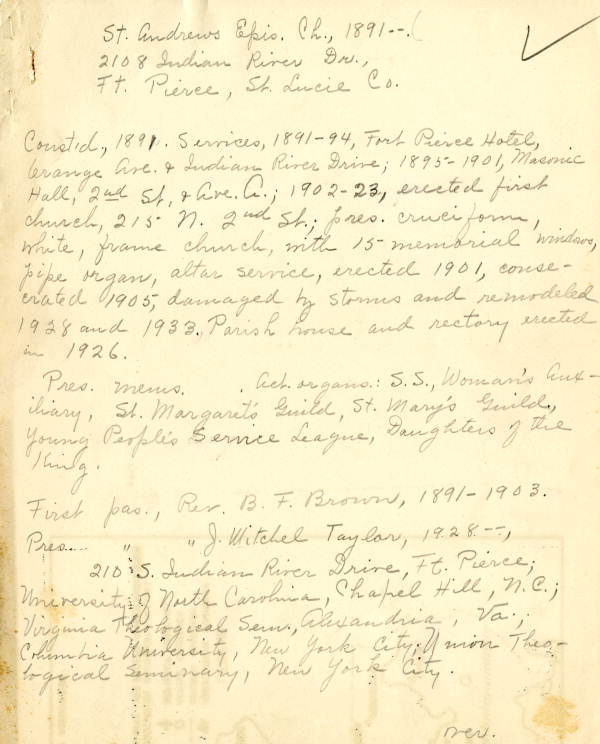 St. Andrews Epis. Ch., 1891--.
2108 Indian River Dr.,
Ft. Pierce, St. Lucie Co.
Const'd., 1891. Services, 1891-94, Fort Pierce Hotel,
Orange Ave. & Indian River Drive; 1895-1901, Masonic
Hall, 2nd St. & Ave. A.; 1902-23, erected first
church, 215 N. 2nd St.; pres. cruciform,
white, frame church, with 15 memorial windows,
pipe organ, altar service, erected 1901, conse-
crated 1905, damaged by storms and remodeled
1928 and 1933. Parish house and rectory erected
in 1926.
Pres. mems. . Act. organs.: S.S., Woman's Aux-
iliary, St. Margaret's Guild, St. Mary's Guild,
Young People's Service League, Daughters of the
King.
First pas., Rev. B. F. Brown, 1891-1903.
Pres.... " " J. Mitchel Taylor, 1928--,
210 S. Indian River Drive, Ft. Pierce;
University of North Carolina, Chapel Hill, N.C.;
Virginia Theological Sem., Alexandria, Va.;
Columbia University, New York City; Union Theo-
logical Seminary, New York City.
over.